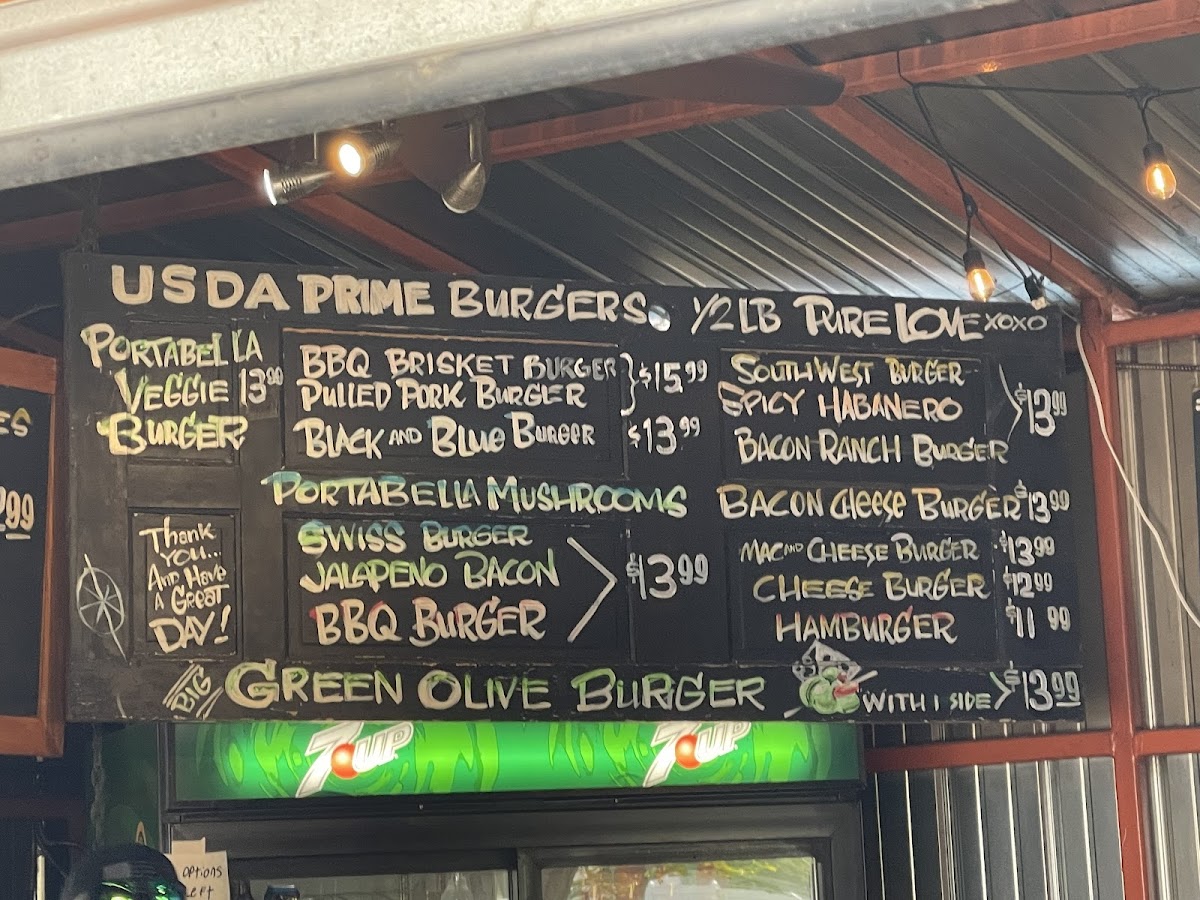 USDA PRIME BURGERS 1/2 LB PURE LOVE XOXO
PORTABELLA
VEGGIE 13.90
BURGER
BBQ BRISKET BURGER
PULLED PORK BURGER
$15.99
BLACK AND BLUE BURGER $13.99
PORTABELLA MUSHROOMS
SWISS BURGER
JALAPENO BACON
BBQ BURGER
$13.99
SOUTHWEST BURGER
SPICY HABANERO
BACON RANCH BURGER
$13.99
BACON CHEESE BURGER $13.99
MAC AND CHEESE BURGER $13.99
CHEESE BURGER $12.99
HAMBURGER $11.99
Thank
You...
And Have
A Great
DAY!
BIG GREEN OLIVE BURGER WITH 1 SIDE $13.99
ES
.99
7UP 7UP
OPTIONS
LEFT